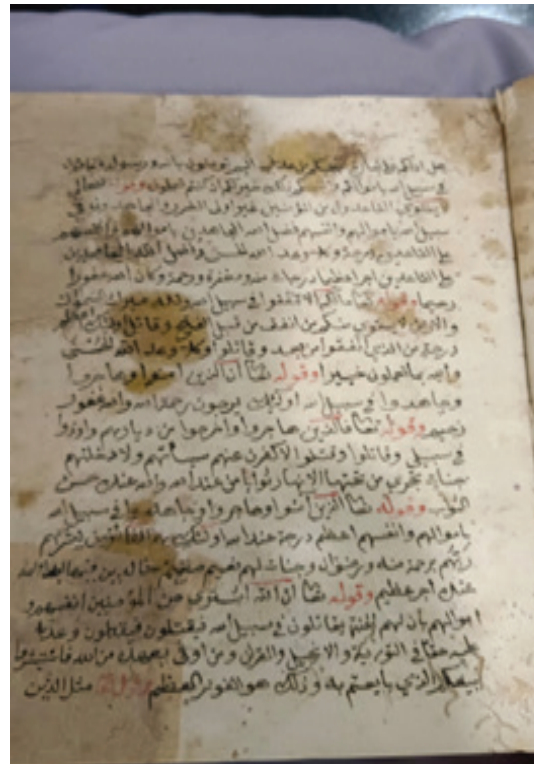 هل ادلكم على تجارة تنجيكم من عذاب اليم تؤمنون بالله ورسوله وتجاهدون
في سبيل الله باموالكم ذلكم خير لكم ان كنتم تعلمون وقوله تعالى
لا يستوي القاعدون من المؤمنين غير اولى الضرر والمجاهدون في
سبيل الله باموالهم وانفسهم فضل الله المجاهدين باموالهم وانفسهم
على القاعدين درجة وكلا وعد الله الحسنى وفضل الله المجاهدين
على القاعدين اجرا عظيما درجات منه ومغفرة ورحمة وكان الله غفورا
رحيما وقوله تعا مالكم الا تنفقوا في سبيل الله ولله ميراث السموات
والارض لا يستوي منكم من انفق من قبل الفتح وقاتل اولئك اعظم
درجة من الذين انفقوا من بعد وقاتلوا وكلا وعد الله الحسنى
والله بما تعملون خبير وقوله تعا ان الذين امنوا وهاجروا
وجاهدوا في سبيل الله اولئك يرجون رحمة الله والله غفور
رحيم وقوله تعا فالذين هاجروا واخرجوا من ديارهم واوذوا
في سبيلي وقاتلوا وقتلوا لاكفرن عنهم سيأتهم ولادخلنهم
جنات تجري من تحتها الانهار ثوابا من عند الله والله عنده حسن
الثواب وقوله تعا الذين امنوا وهاجروا وجاهدوا في سبيل الله
باموالهم وانفسهم اعظم درجة عند الله واولئك هم الفائزون يبشرهم
ربهم برحمة منه ورضوان وجنات لهم فيها نعيم مقيم خالدين فيها ابدا ان الله
عنده اجر عظيم وقوله تعا ان الله اشترى من المؤمنين انفسهم و
اموالهم بان لهم الجنة يقاتلون في سبيل الله فيقتلون ويقتلون وعدا
عليه حقا في التورية والانجيل والقران ومن اوفى بعهده من الله فاستبشروا
ببيعكم الذي بايعتم به وذلك هو الفوز العظيم مثل الذين